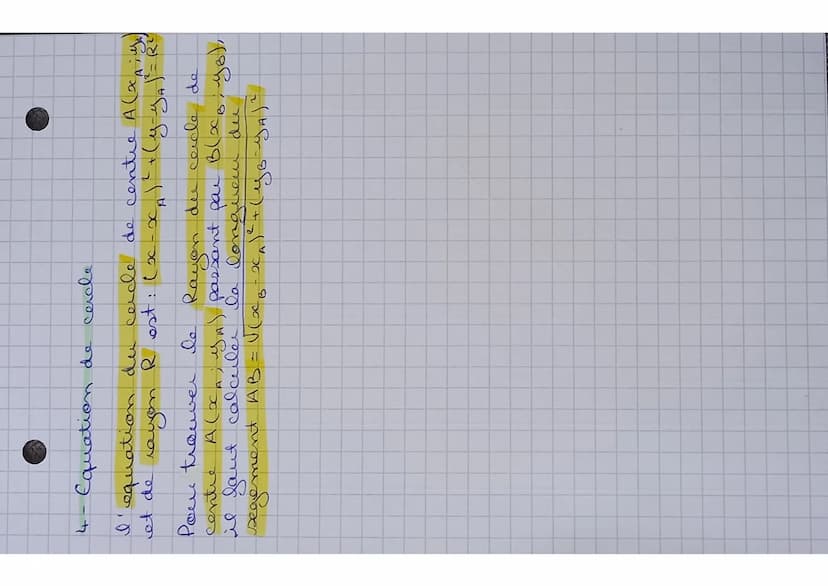 4 - Equation de cercle
l'équation du cercle de centre A(xA ; yA)
et de rayon R est : (x - xA)² + (y - yA)² = R²
Pour trouver le Rayon du cercle de
centre A(xA ; yA) passant par B(xB ; yB),
il faut calculer la longueur du
segment AB = √(xB - xA)² + (yB - yA)²